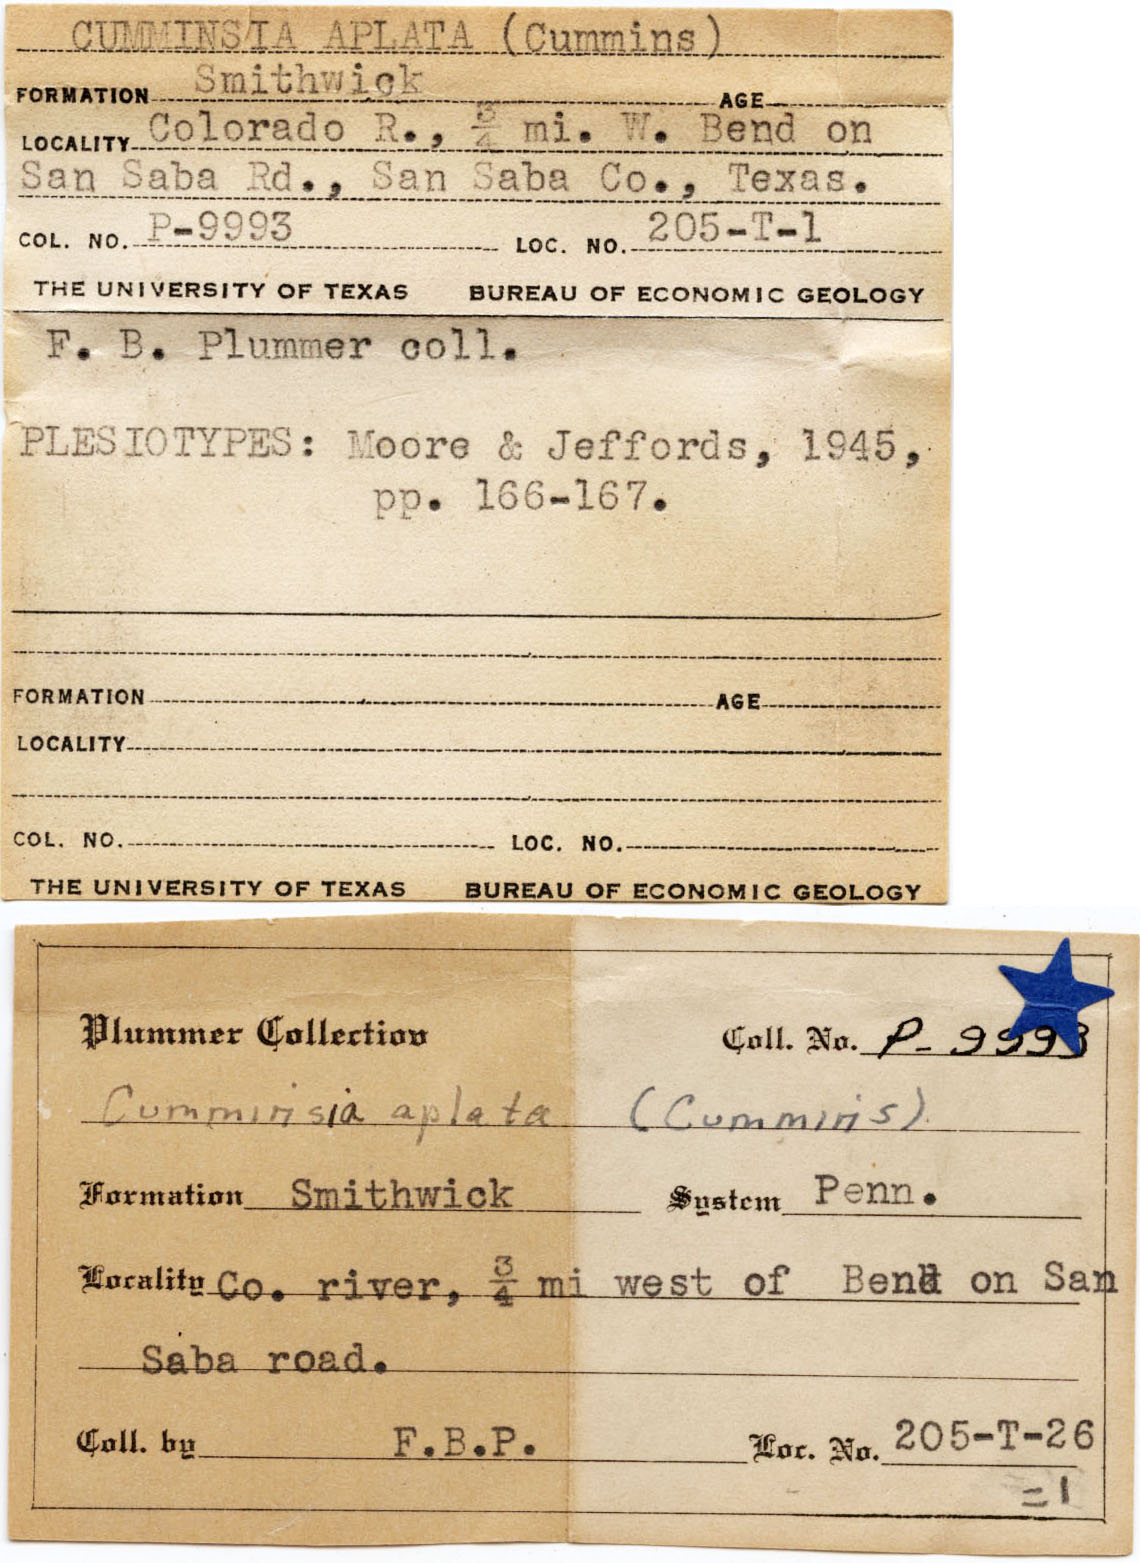 CUMMINSIA APLATA (Cummins)
FORMATION Smithwick AGE
LOCALITY Colorado R., 3/4 mi. W. Bend on
San Saba Rd., San Saba Co., Texas.
COL. NO. P-9993 LOC. NO. 205-T-1
THE UNIVERSITY OF TEXAS BUREAU OF ECONOMIC GEOLOGY
F. B. Plummer coll.
PLESIOTYPES: Moore & Jeffords, 1945,
pp. 166-167.
FORMATION AGE
LOCALITY
COL. NO. LOC. NO.
THE UNIVERSITY OF TEXAS BUREAU OF ECONOMIC GEOLOGY
Plummer Collection Coll. No. P-9993
Cumminsia aplata (Cummins)
Formation Smithwick System Penn.
Locality Co. river, 3/4 mi west of Bend on San
Saba road.
Coll. by F.B.P. Loc. No. 205-T-26
=1